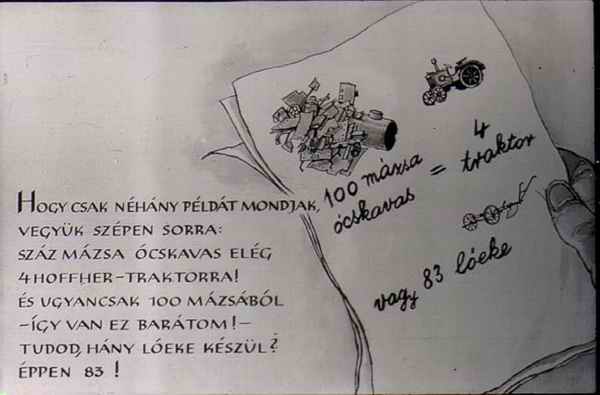 HOGY CSAK NÉHÁNY PÉLDÁT MONDJAK,
VEGYÜK SZÉPEN SORRA:
SZÁZ MÁZSA ÓCSKAVAS ELÉG
4 HOFFHER-TRAKTORRA!
ÉS UGYANCSAK 100 MÁZSÁBÓL
-ÍGY VAN EZ BARÁTOM!-
TUDOD, HÁNY LÓEKE KÉSZÜL?
ÉPPEN 83!
100 mázsa
ócskavas
=
4
traktor
vagy 83 lóeke